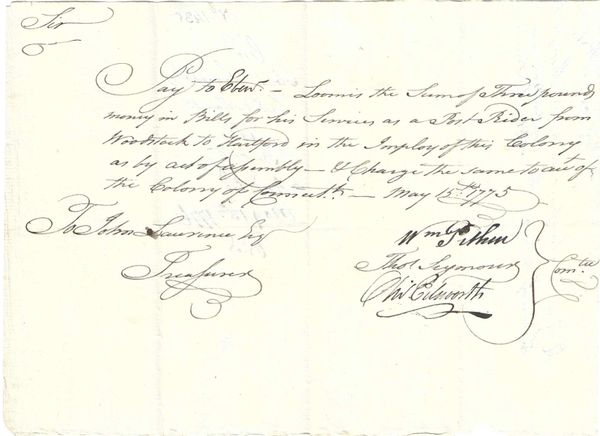 Sir
Pay to Eben.r — Loomis the Sum of Three pounds
money in Bills for his Services as a Post Rider from
Woodstock to Hartford in the Imploy of this Colony
as by act of assembly — & Charge the same to acct of
the Colony of Connectt. — May 15th 1775
To John Lawrence Esq
Treasurer
Wm Pitkin
Thos Seymour
Comtee